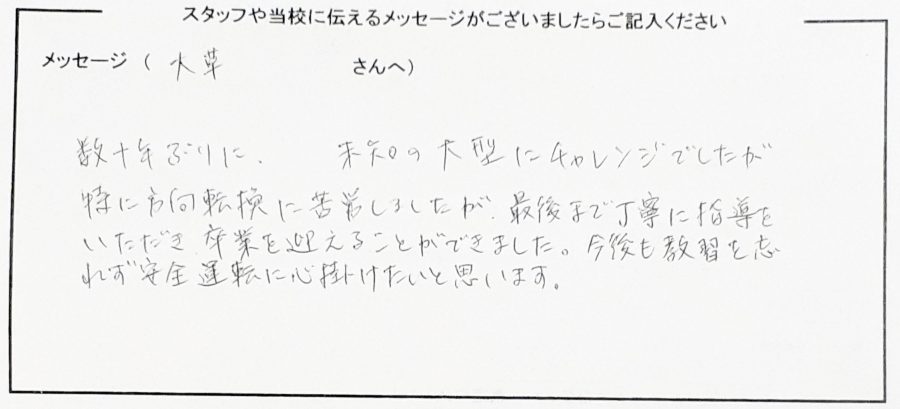 スタッフや当校に伝えるメッセージがございましたらご記入ください
メッセージ ( 大草 さんへ)
数十年ぶりに、 未知の大型にチャレンジでしたが
特に方向転換に苦労しましたが、最後まで丁寧に指導を
いただき卒業を迎えることができました。今後も教習を忘
れず安全運転に心掛けたいと思います。